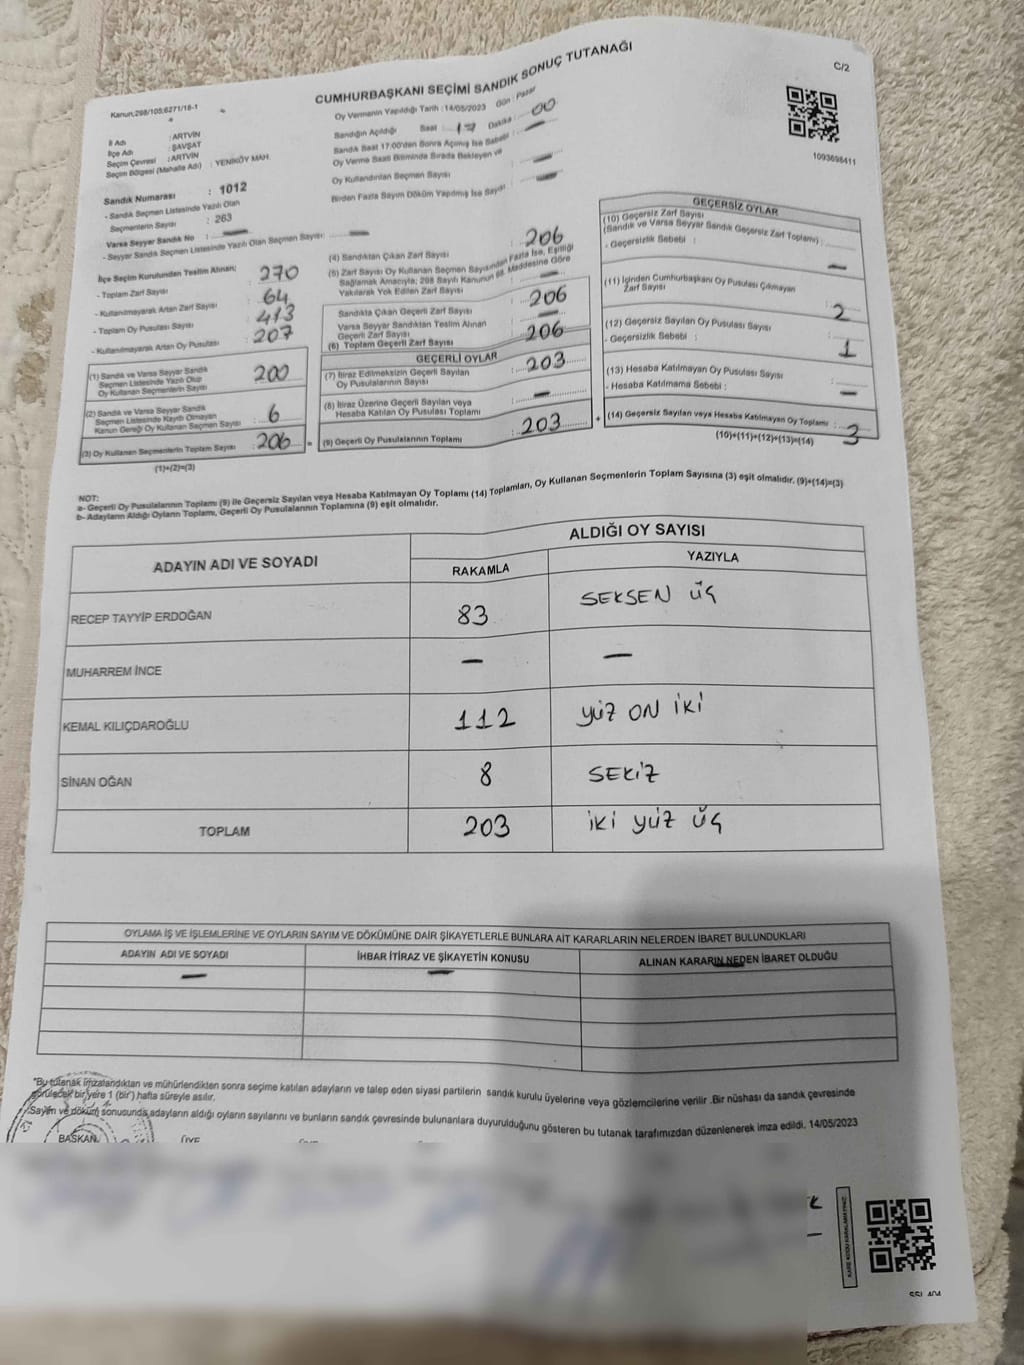 CUMHURBAŞKANI SEÇİMİ SANDIK SONUÇ TUTANAĞI
C/2
Kanun:298/105;6271/18-1
Oy Vermenin Yapıldığı Tarih : 14/05/2023 Gün : Pazar
Sandığın Açıldığı Saat : 17 Dakika : 00
Sandık Saat 17:00'den Sonra Açılmış İse Sebebi : —
Oy Verme Saati Bitiminde Sırada Bekleyen ve
Oy Kullandırılan Seçmen Sayısı —
Birden Fazla Sayım Döküm Yapılmış İse Sayısı —
1093698411
İl Adı : ARTVİN
İlçe Adı : ŞAVŞAT
Seçim Çevresi : ARTVİN
Seçim Bölgesi (Mahalle Adı) : YENİKÖY MAH.
Sandık Numarası : 1012
- Sandık Seçmen Listesinde Yazılı Olan
Seçmenlerin Sayısı : 263
Varsa Seyyar Sandık No : —
- Seyyar Sandık Seçmen Listesinde Yazılı Olan Seçmen Sayısı: —
İlçe Seçim Kurulundan Teslim Alınan;
- Toplam Zarf Sayısı 270
- Kullanılmayarak Artan Zarf Sayısı 64
- Toplam Oy Pusulası Sayısı 413
- Kullanılmayarak Artan Oy Pusulası 207
(1) Sandık ve Varsa Seyyar Sandık
Seçmen Listesinde Yazılı Olup
Oy Kullanan Seçmenlerin Sayısı 200
(2) Sandık ve Varsa Seyyar Sandık
Seçmen Listesinde Kayıtlı Olmayan
Kanun Gereği Oy Kullanan Seçmen Sayısı : 6
(3) Oy Kullanan Seçmenlerin Toplam Sayısı : 206 =
(1)+(2)=(3)
(4) Sandıktan Çıkan Zarf Sayısı : 206
(5) Zarf Sayısı Oy Kullanan Seçmen Sayısından Fazla İse, Eşitliği
Sağlamak Amacıyla; 298 Sayılı Kanunun 98. Maddesine Göre
Yakılarak Yok Edilen Zarf Sayısı —
Sandıkta Çıkan Geçerli Zarf Sayısı : 206
Varsa Seyyar Sandıktan Teslim Alınan
Geçerli Zarf Sayısı : —
(6) Toplam Geçerli Zarf Sayısı : 206
GEÇERLİ OYLAR
(7) İtiraz Edilmeksizin Geçerli Sayılan
Oy Pusulalarının Sayısı : 203
(8) İtiraz Üzerine Geçerli Sayılan veya
Hesaba Katılan Oy Pusulası Toplamı : —
(9) Geçerli Oy Pusulalarının Toplamı : 203 +
GEÇERSİZ OYLAR
(10) Geçersiz Zarf Sayısı
(Sandık ve Varsa Seyyar Sandık Geçersiz Zarf Toplamı) :
- Geçersizlik Sebebi : —
(11) İçinden Cumhurbaşkanı Oy Pusulası Çıkmayan
Zarf Sayısı : 2
(12) Geçersiz Sayılan Oy Pusulası Sayısı
- Geçersizlik Sebebi : 1
(13) Hesaba Katılmayan Oy Pusulası Sayısı
- Hesaba Katılmama Sebebi : —
(14) Geçersiz Sayılan veya Hesaba Katılmayan Oy Toplamı : 3
(10)+(11)+(12)+(13)=(14)
NOT:
a- Geçerli Oy Pusulalarının Toplamı (9) ile Geçersiz Sayılan veya Hesaba Katılmayan Oy Toplamı (14) Toplamları, Oy Kullanan Seçmenlerin Toplam Sayısına (3) eşit olmalıdır. (9)+(14)=(3)
b- Adayların Aldığı Oyların Toplamı, Geçerli Oy Pusulalarının Toplamına (9) eşit olmalıdır.
ADAYIN ADI VE SOYADI
ALDIĞI OY SAYISI
RAKAMLA YAZIYLA
RECEP TAYYİP ERDOĞAN 83 SEKSEN ÜÇ
MUHARREM İNCE — —
KEMAL KILIÇDAROĞLU 112 YÜZ ON İKİ
SİNAN OĞAN 8 SEKİZ
TOPLAM 203 İKİ YÜZ ÜÇ
OYLAMA İŞ VE İŞLEMLERİNE VE OYLARIN SAYIM VE DÖKÜMÜNE DAİR ŞİKAYETLERLE BUNLARA AİT KARARLARIN NELERDEN İBARET BULUNDUKLARI
ADAYIN ADI VE SOYADI İHBAR İTİRAZ VE ŞİKAYETİN KONUSU ALINAN KARARIN NEDEN İBARET OLDUĞU
— — —
*Bu tutanak imzalandıktan ve mühürlendikten sonra seçime katılan adayların ve talep eden siyasi partilerin sandık kurulu üyelerine veya gözlemcilerine verilir .Bir nüshası da sandık çevresinde
görülecek bir yere 1 (bir) hafta süreyle asılır.
Sayım ve döküm sonucunda adayların aldığı oyların sayılarını ve bunların sandık çevresinde bulunanlara duyurulduğunu gösteren bu tutanak tarafımızdan düzenlenerek imza edildi. 14/05/2023
BAŞKAN ÜYE